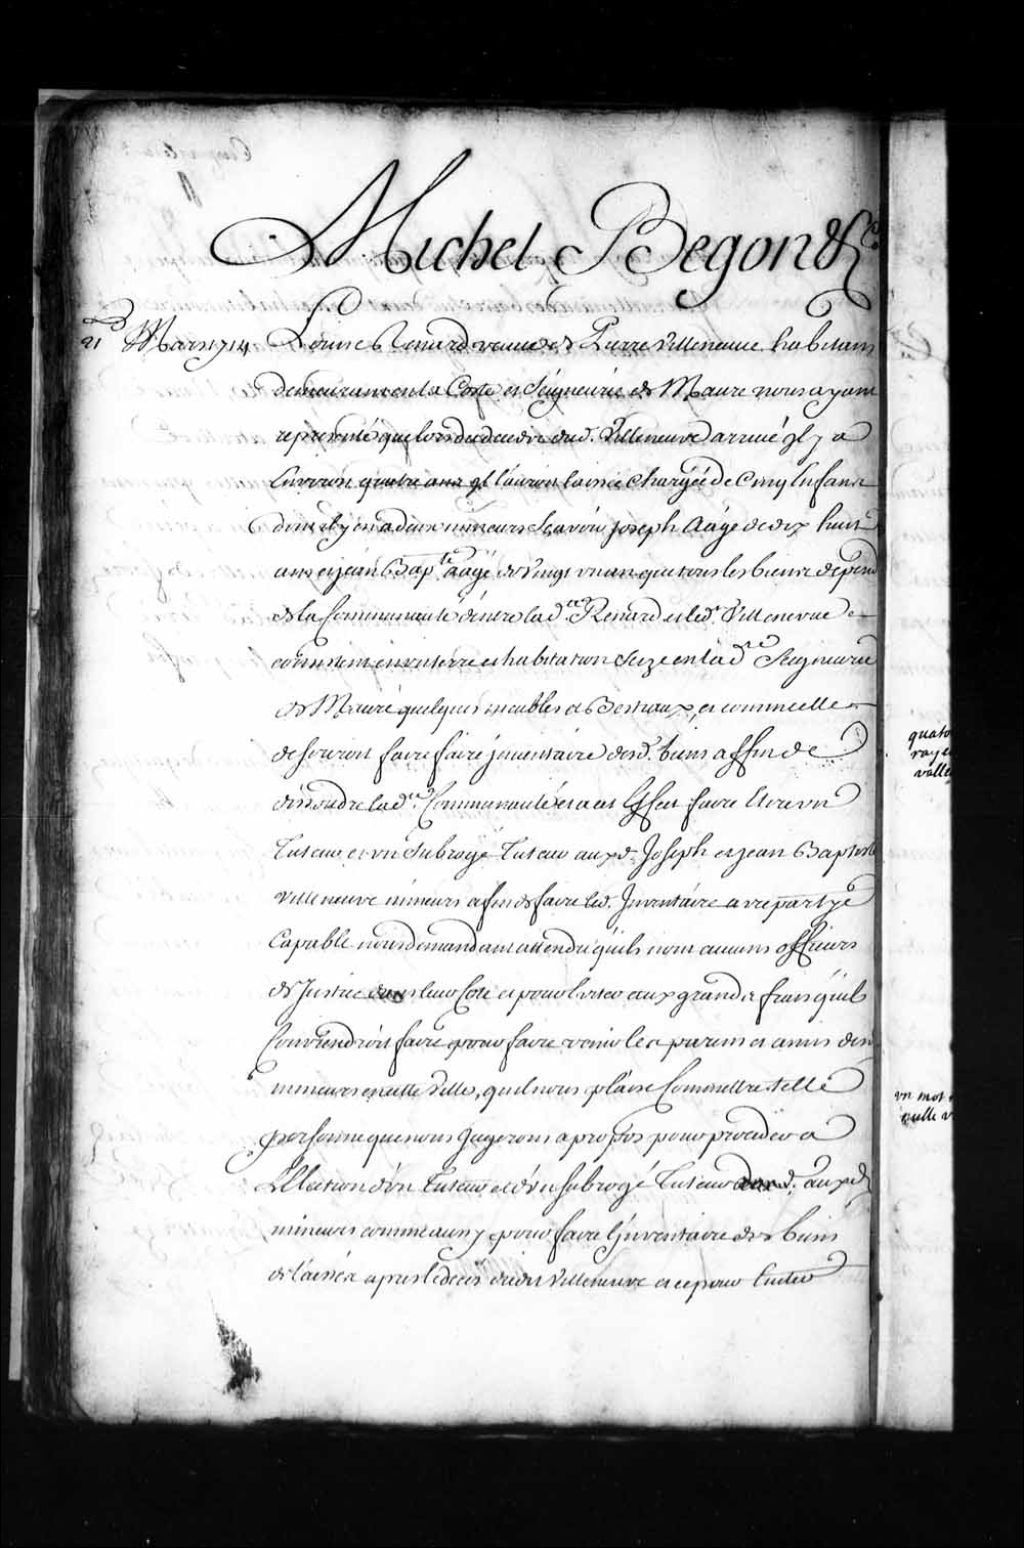 Michel Begon &c.
21 Mars 1714 Louise Renard veuve de Pierre Villeneuve habitans
demeurant en la Coste et Seigneurie de Maure nous ayant
representé que lors du deceds dud. Villeneuve arrivé jl y a
Environ quatre ans jl l'auroit laissée Chargée de Cinq Enfans
dont il y en a deux mineurs Scavoir Joseph Aagé de dix huit
ans et jean Bapte. aagé de Vingt un an que tous les biens depend
de la Communauté d'entre lad. Renard et led. Villeneuve
consistent en une terre et habitation Seize en lad. Seigneurie
de Maure quelques meubles et Bestiaux, et comme elle
desireroit faire faire jnventaire desd. biens affin de
dissoudre lad. Communauté et a cet Effet faire Elire un
Tuteur et un Subrogé Tuteur auxd. Joseph et jean Baptiste
Villeneuve mineurs afin de faire led. Jnventaire avec partye
Capable nous demandant attendu qu'ils n'ont aucuns officiers
de Justice dans leur Coste et pour Eviter aux grands frais qu'il
Conviendroit faire pour faire venir les parens et amis desd
mineurs en cette Ville, quil nous plaise Commettre telle
personne que nous Jugerons a propos pour proceder a
L'Election d'un Tuteur et d'un subrogé Tuteur auxd
mineurs comme aussy pour faire l'jnventaire des biens
delaissés apres le decés dudit Villeneuve et ce pour Eviter
quato
raye
valle
un mot
nulle v